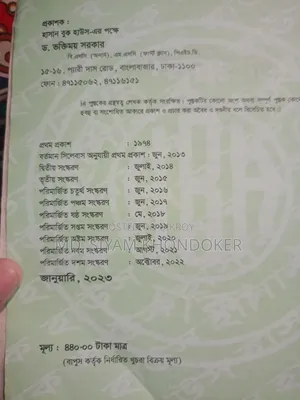 প্রকাশক :
হাসান বুক হাউস-এর পক্ষে
ড. ভক্তিময় সরকার
১৫-১৬, প্যারী দাস রোড, বাংলাবাজার, ঢাকা-১১০০
ফোন : ৪৭১১৫০৬২, ৪৭১১৬১৫১
প্রথম প্রকাশ : ১৯৭৪
বর্তমান সিলেবাস অনুযায়ী প্রথম প্রকাশ : জুন, ২০১৩
দ্বিতীয় সংস্করণ : জুলাই, ২০১৪
তৃতীয় সংস্করণ : জুন, ২০১৫
পরিমার্জিত চতুর্থ সংস্করণ : জুন, ২০১৬
পরিমার্জিত পঞ্চম সংস্করণ : জুন, ২০১৭
পরিমার্জিত ষষ্ঠ সংস্করণ : মে, ২০১৮
পরিমার্জিত সপ্তম সংস্করণ : জুন, ২০১৯
পরিমার্জিত অষ্টম সংস্করণ : জুলাই, ২০২০
পরিমার্জিত নবম সংস্করণ : আগস্ট, ২০২১
পরিমার্জিত দশম সংস্করণ : অক্টোবর, ২০২২
জানুয়ারি, ২০২৩
মূল্য : ৪৪০·০০ টাকা মাত্র
(বাপুস কর্তৃক নির্ধারিত খুচরা বিক্রয় মূল্য)